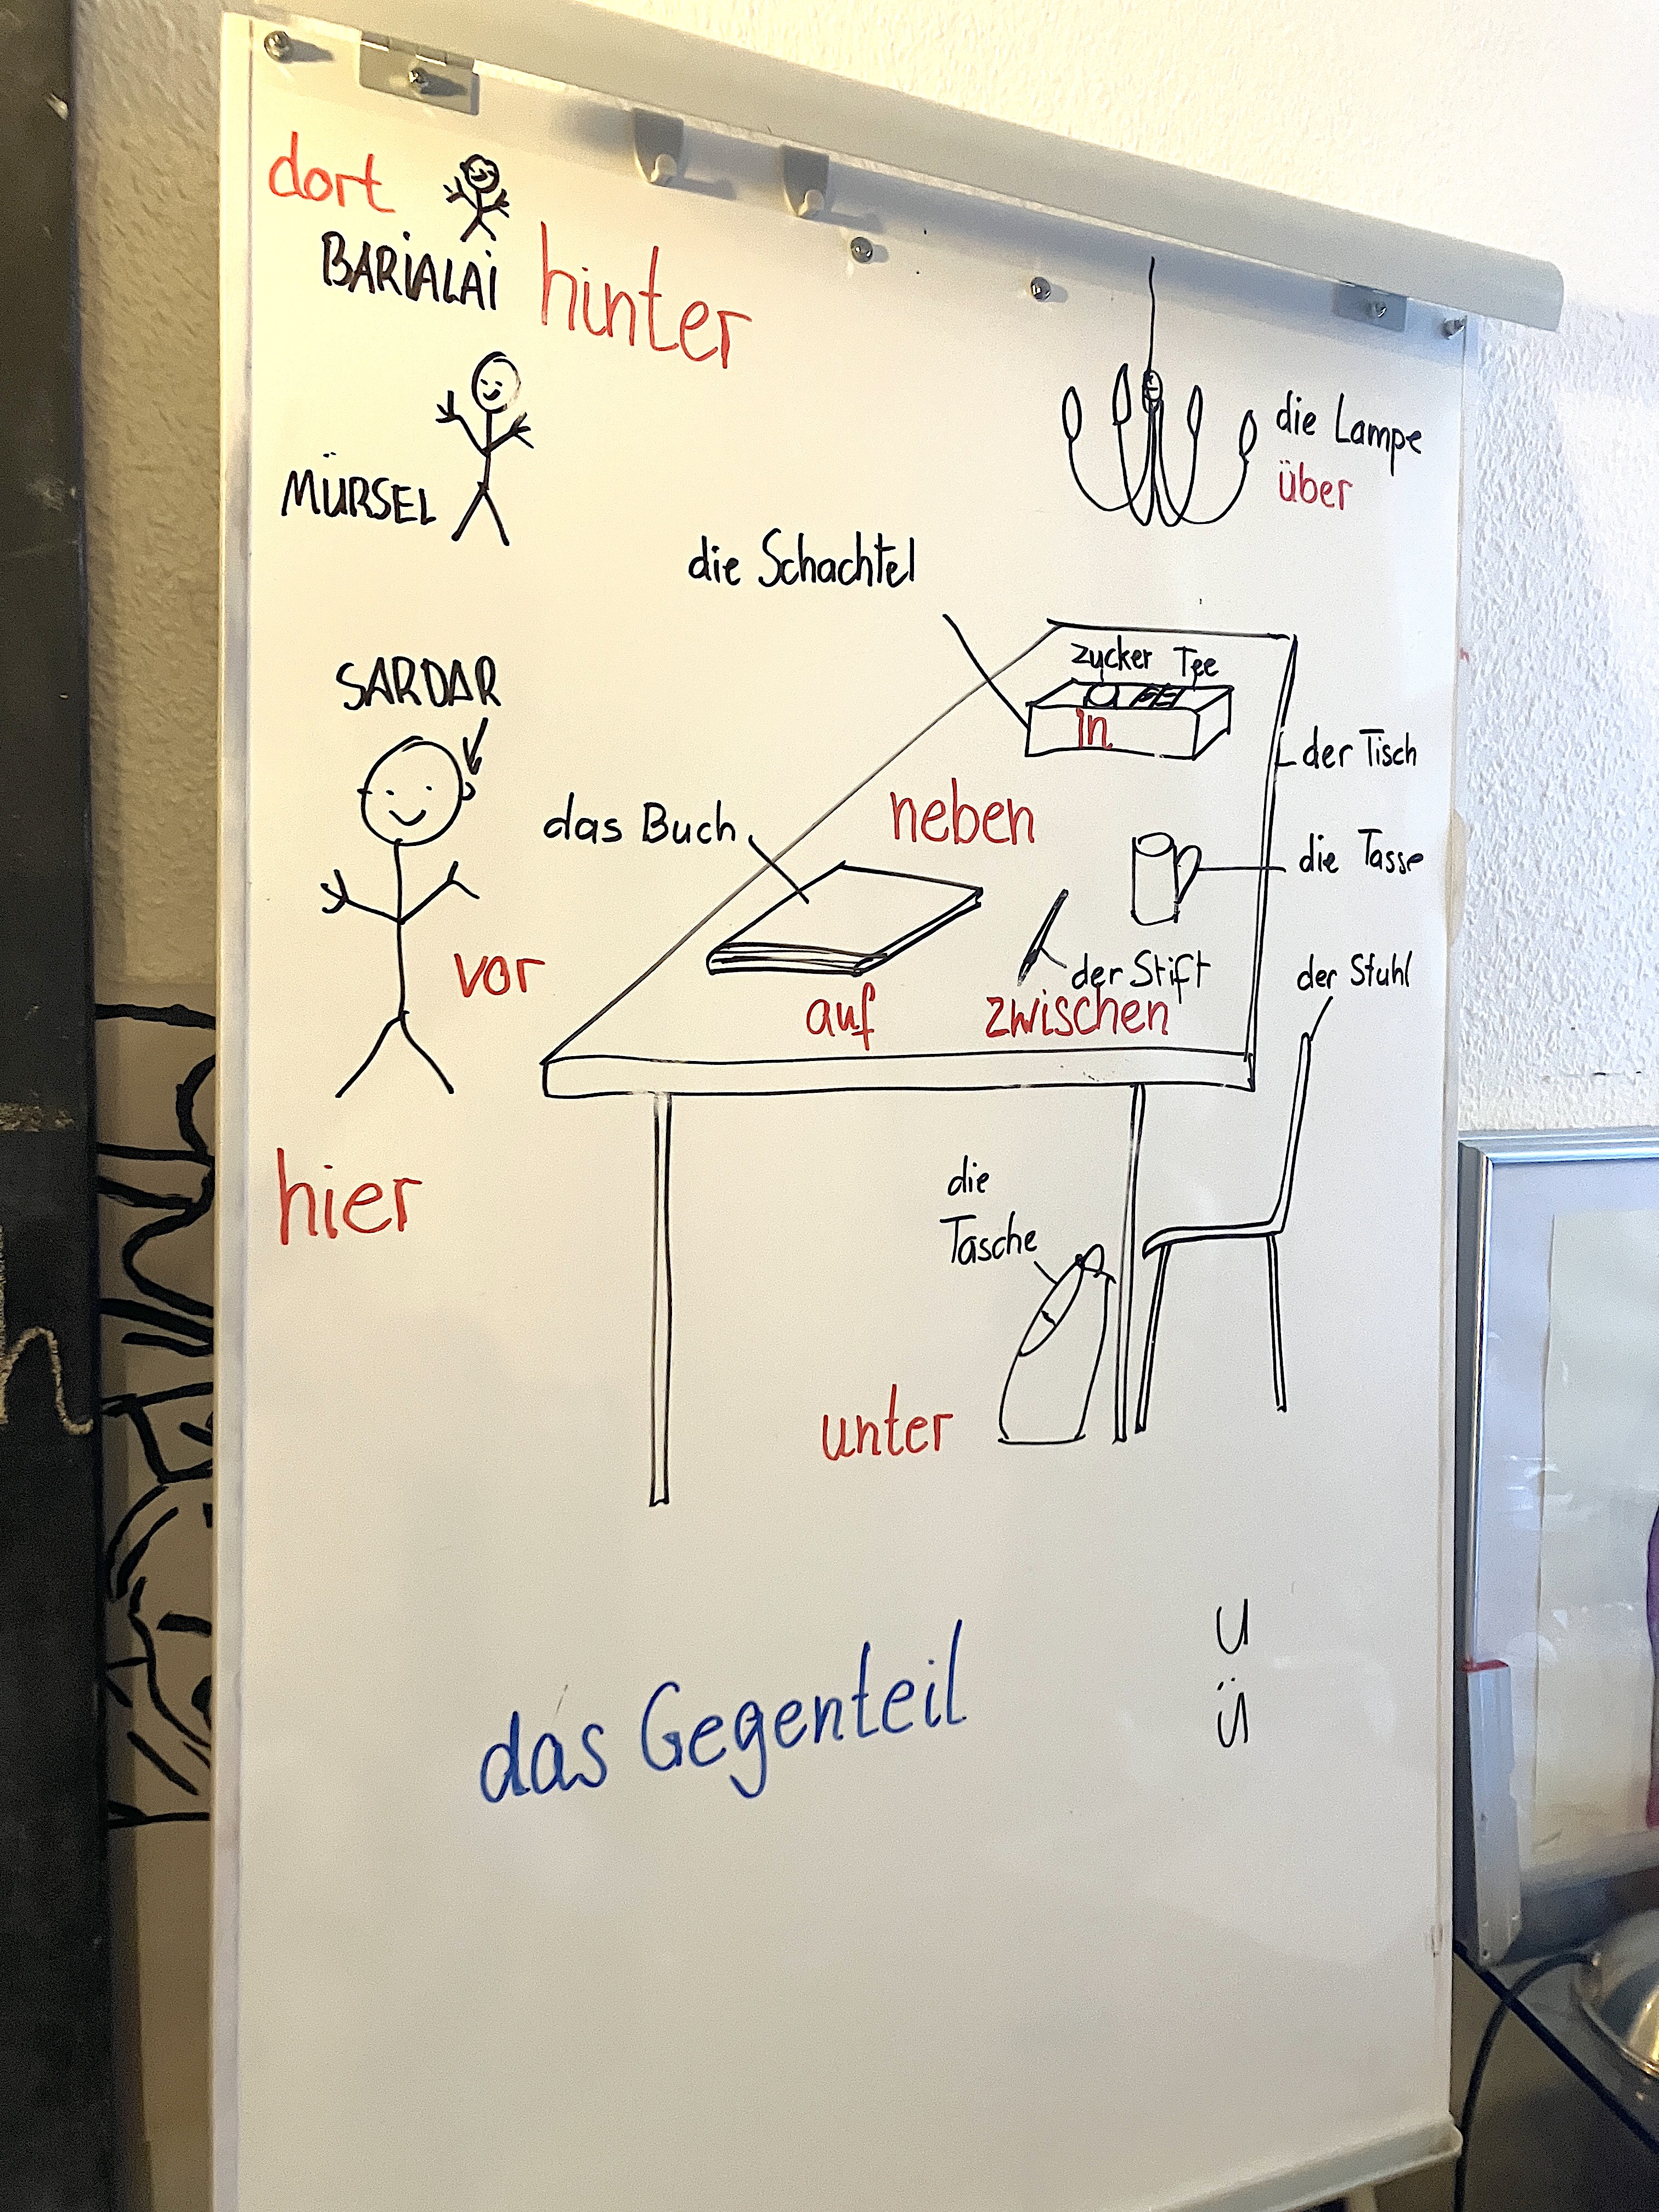 dort
BARIALAI
hinter
MÜRSEL
die Lampe
über
die Schachtel
SARDAR
Zucker Tee
in
der Tisch
neben
das Buch
die Tasse
vor
der Stift
auf
zwischen
der Stuhl
hier
die
Tasche
unter
das Gegenteil
U
Ü